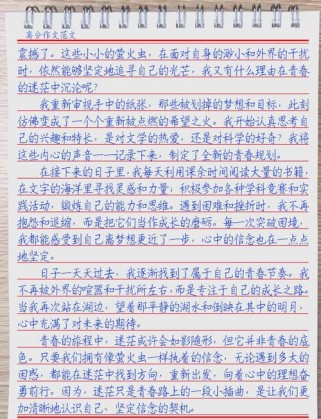 高分作文范文
震撼了。这些小小的萤火虫，在面对自身的渺小和外界的干扰
时，依然能够坚定地追寻自己的光芒，我又有什么理由在青春
的迷茫中沉沦呢？
我重新审视手中的纸张，那些被划掉的梦想和目标，此刻
仿佛变成了一个个重新被点燃的希望之火。我开始认真思考自
己的兴趣和特长，是对文学的热爱，还是对科学的好奇？我将
这些内心的声音一一记录下来，制定了全新的青春规划。
在接下来的日子里，我每天利用课余时间阅读大量的书籍，
在文字的海洋里寻找灵感和力量；积极参加各种学科竞赛和实
践活动，锻炼自己的能力和思维。遇到困难和挫折时，我不再
抱怨和退缩，而是把它们当作成长的磨砺。每一次突破困境，
我都能感受到自己离梦想更近了一步，心中的信念也在一点点
地坚定。
日子一天天过去，我逐渐找到了属于自己的青春节奏。我
不再被外界的喧嚣和干扰所左右，而是专注于自己的成长之路。
当我再次站在湖边，望着那平静的湖水和倒映在其中的明月，
心中充满了对未来的期待。
青春的旅程中，迷茫或许会如影随形，但它并非青春的底
色。只要我们拥有像萤火虫一样执着的信念，无论遇到多大的
困惑，都能在迷茫中找到方向，重新出发，向着心中的理想奋
勇前行。因为，迷茫只是青春路上的一段小插曲，是让我们更
加清晰地认识自己，坚定信念的契机。